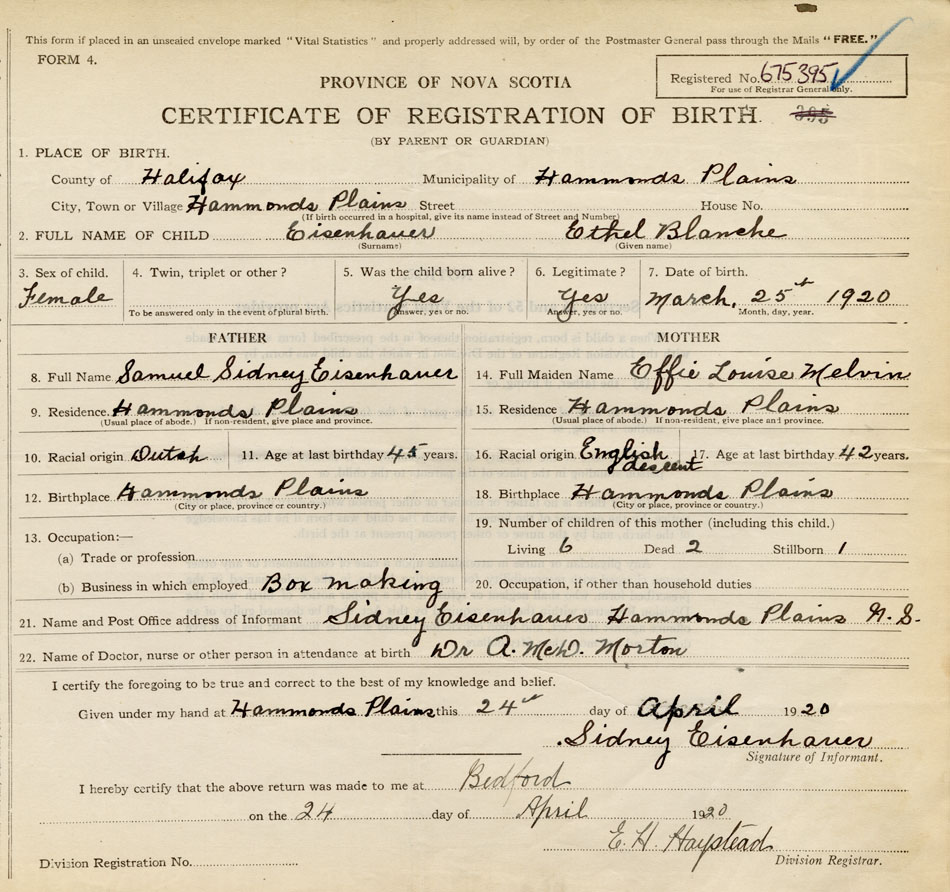 This form if placed in an unsealed envelope marked "Vital Statistics" and properly addressed will, by order of the Postmaster General pass through the Mails "FREE."
FORM 4.
Registered No. 675395
For use of Registrar General only.
PROVINCE OF NOVA SCOTIA
CERTIFICATE OF REGISTRATION OF BIRTH. 395
(BY PARENT OR GUARDIAN)
1. PLACE OF BIRTH.
County of Halifax Municipality of Hammonds Plains
City, Town or Village Hammonds Plains Street House No.
(If birth occurred in a hospital, give its name instead of Street and Number)
2. FULL NAME OF CHILD Eisenhauer Ethel Blanche
(Surname) (Given name)
3. Sex of child. 4. Twin, triplet or other? 5. Was the child born alive? 6. Legitimate? 7. Date of birth.
Female Yes Yes March, 25th 1920
To be answered only in the event of plural birth. Answer, yes or no. Answer, yes or no. Month, day, year.
FATHER MOTHER
8. Full Name Samuel Sidney Eisenhauer 14. Full Maiden Name Effie Louise Melvin
9. Residence. Hammonds Plains 15. Residence Hammonds Plains
(Usual place of abode.) If non-resident, give place and province. (Usual place of abode.) If non-resident, give place and province.
10. Racial origin Dutch 11. Age at last birthday 45 years. 16. Racial origin English descent 17. Age at last birthday 42 years.
12. Birthplace Hammonds Plains 18. Birthplace Hammonds Plains
(City or place, province or country.) (City or place, province or country.)
13. Occupation:— 19. Number of children of this mother (including this child.)
(a) Trade or profession Living 6 Dead 2 Stillborn 1
(b) Business in which employed Box making 20. Occupation, if other than household duties
21. Name and Post Office address of Informant Sidney Eisenhauer Hammonds Plains N.S.
22. Name of Doctor, nurse or other person in attendance at birth Dr A. McD. Morton
I certify the foregoing to be true and correct to the best of my knowledge and belief.
Given under my hand at Hammonds Plains this 24th day of April 1920
Sidney Eisenhauer
Signature of Informant.
I hereby certify that the above return was made to me at Bedford
on the 24 day of April 1920
E. H. Haystead
Division Registrar.
Division Registration No.